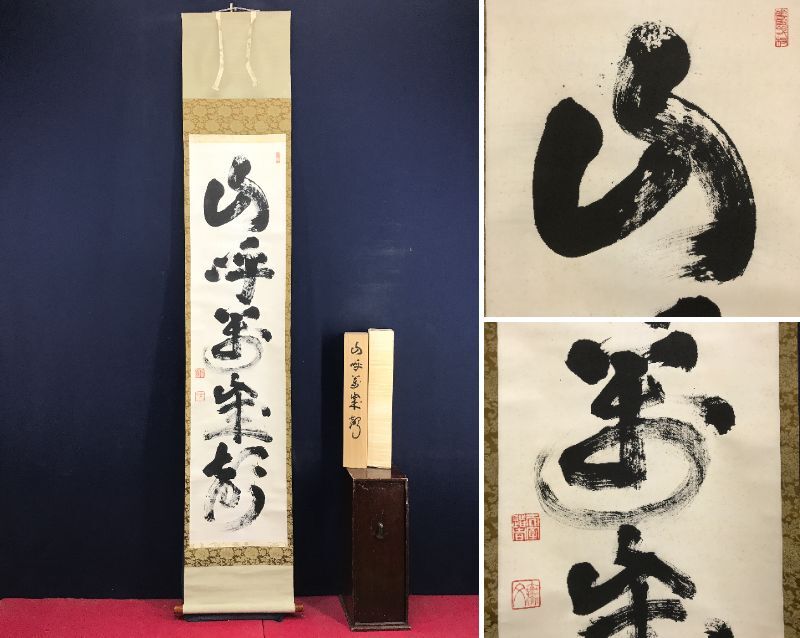 山呼萬歳聲
山呼萬歳聲
山
萬